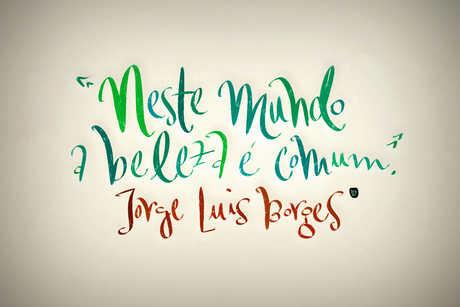 "Neste mundo
a beleza é comum."
Jorge Luis Borges